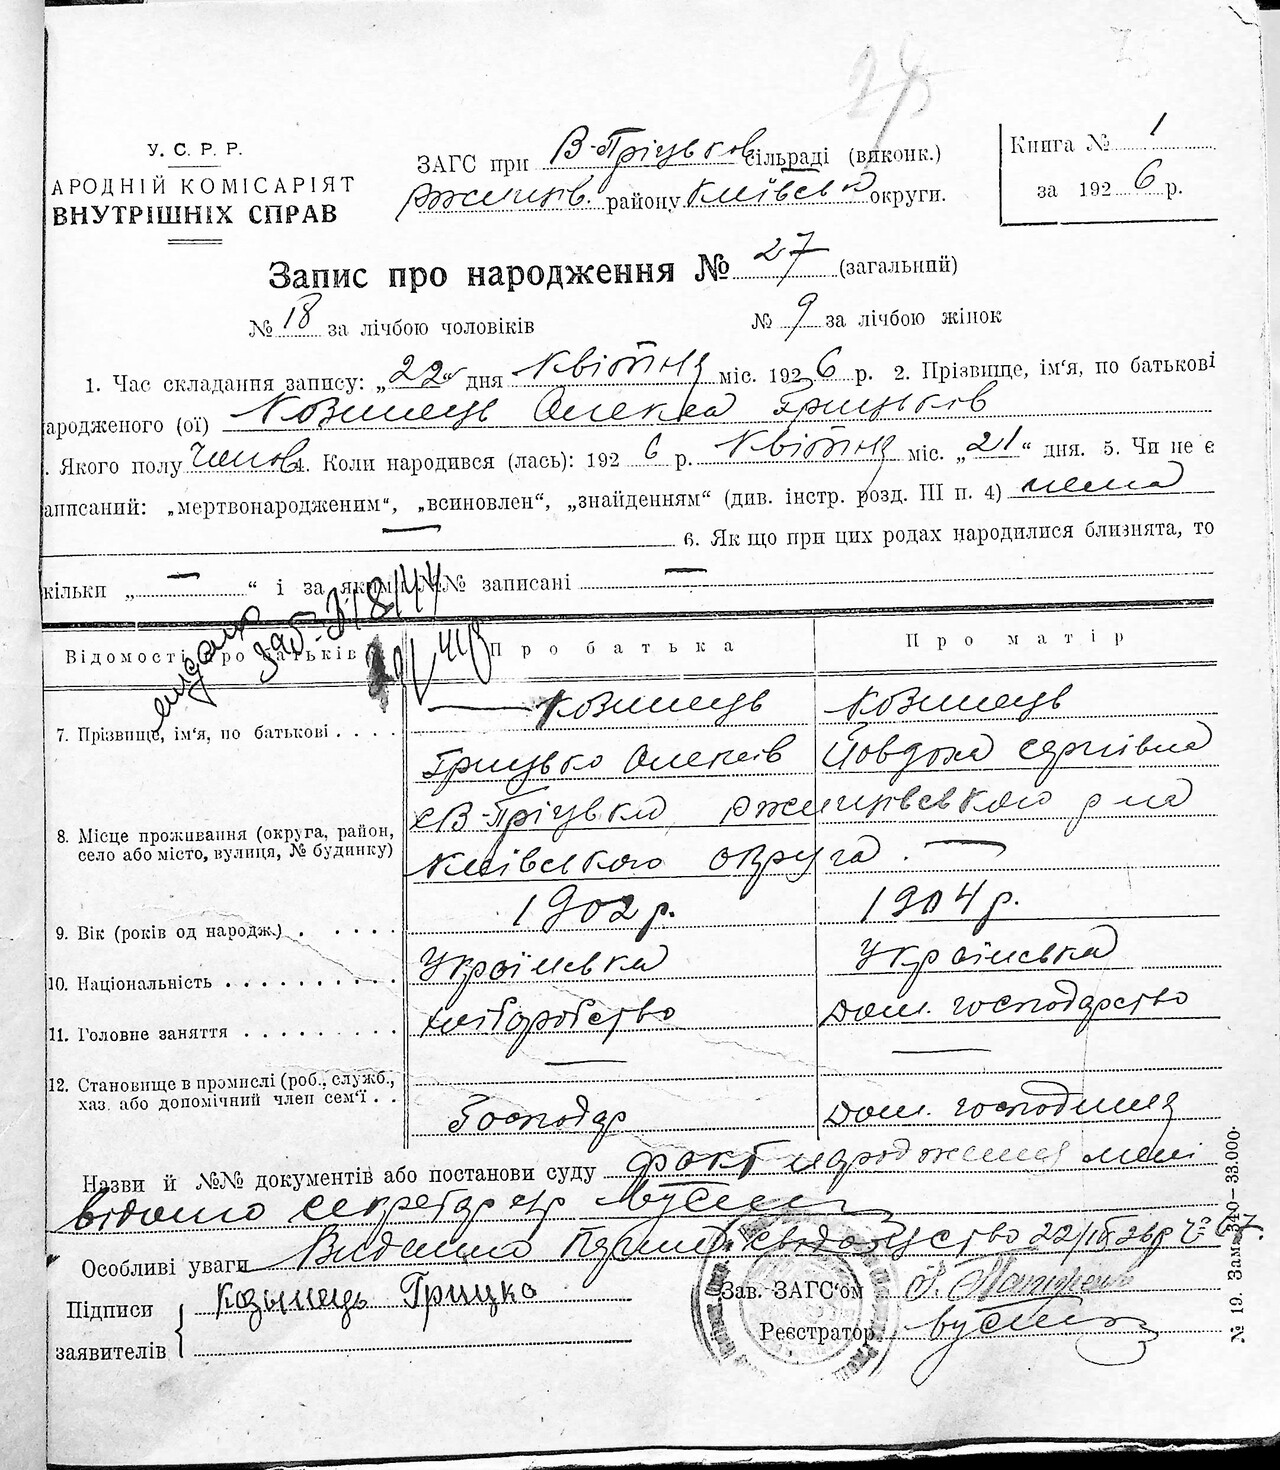 У. С. Р. Р.
АРОДНІЙ КОМІСАРІЯТ
ВНУТРІШНІХ СПРАВ
ЗАГС при В-Пріцьков сільраді (виконк.)
Ржищів. району Київськ округи.
Книга № 1
за 1926 р.
Запис про народження № 27 (загальний)
№ 18 за лічбою чоловіків № 9 за лічбою жінок
1. Час складання запису: „22“ дня Квітня міс. 1926 р. 2. Прізвище, ім'я, по батькові
ародженого (ої) Козинець Олекса Грицьків
. Якого полу Чолов. 4. Коли народився (лась): 1926 р. Квітня міс. „21“ дня. 5. Чи не є
аписаний: „мертвонародженим“, „всиновлен“, „знайденням“ (див. інстр. розд. III п. 4) нема
— 6. Як що при цих родах народилися близнята, то
кільки „ — “ і за яким №№ записані —
Відомості про батьків Про батька Про матір
7. Прізвище, ім'я, по батькові . . . . Козинець Козинець
Грицько Олексів Йовдоха Сергіївна
8. Місце проживання (округа, район, село або місто, вулиця, № будинку)
с В-Пріцьки Ржищівського р-на
Київського округа. —
9. Вік (років од народж.) . . . . . 1902 р. 1904 р.
10. Національність . . . . . . . . . . Українська Українська
11. Головне заняття . . . . . . . . хліборобство дом. господарство
12. Становище в промислі (роб., служб., — —
хаз. або допомічний член сем'ї . . Господар дом. господиня
Назви й №№ документів або постанови суду факт народження мені
відомо секретар
Особливі уваги Видано свидоцтво 22/IV 26 р
Підписи Козынець Грицко Зав. ЗАГС'ом
заявителів Реєстратор
№ 19. Зам. 340—33.000.